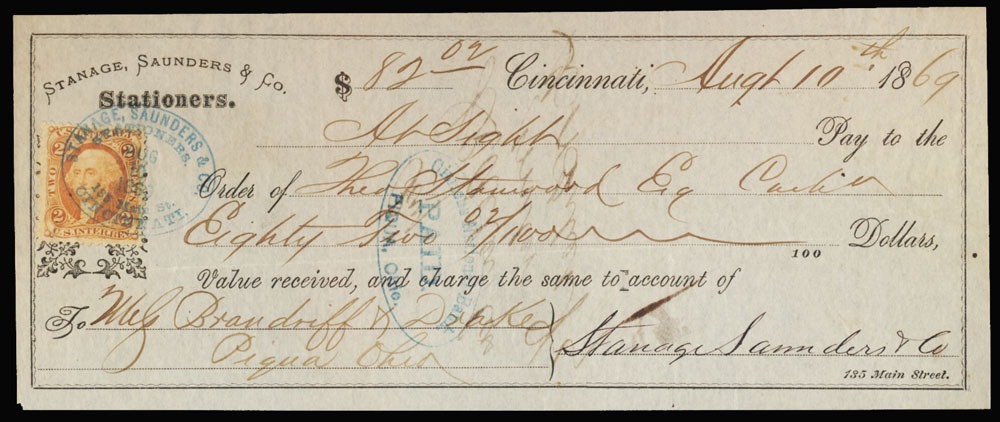 STANAGE, SAUNDERS & Co.
Stationers.
$ 82 02 Cincinnati, Augt 10th 1869
At Sight Pay to the
Order of Theo Stanwood Esq Cashier
Eighty Two 02/100 100 Dollars,
Value received, and charge the same to account of
To Brandriff & Drake
Piqua Ohio
Stanage Saunders & Co
135 Main Street.
STANAGE, SAUNDERS & Co.
STATIONERS.
AUG
St.
CINCINNATI.
2 2
TWO
2
U.S. INTER. REV.
PAID.
PIQUA, OHIO.